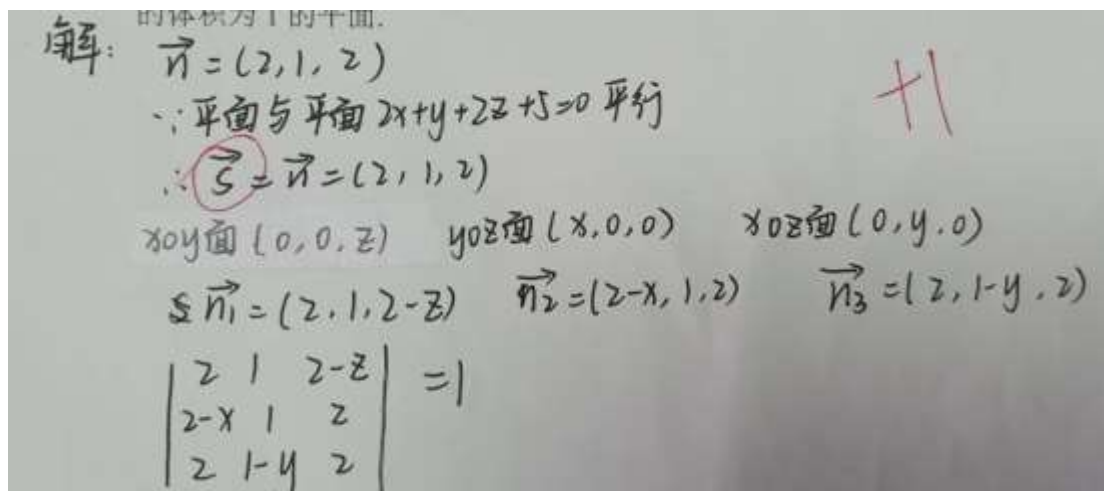 的体积为1的平面.
解: n⃗ = (2, 1, 2)
∵平面与平面 2x+y+2z+5=0 平行
∴ s⃗ = n⃗ = (2, 1, 2)
xoy面 (0, 0, z) yoz面 (x, 0, 0) xoz面 (0, y, 0)
n₁⃗ = (2, 1, 2-z) n₂⃗ = (2-x, 1, 2) n₃⃗ = (2, 1-y, 2)
| 2 1 2-z | =1
| 2-x 1 2 |
| 2 1-y 2 |
+1